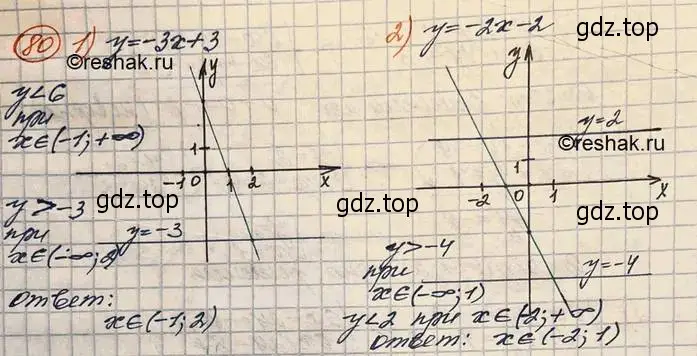 80 1) y=-3x+3
©reshak.ru
y<6
при
x∈(-1;+∞)
y
1
-1 0 1 2 x
gdz.top
y>-3
при y=-3
x∈(-∞;2)
gdz.top
ответ:
x∈(-1;2)
gdz.top
2) y=-2x-2
gdz.top
y
y=2
©reshak.ru
1
-2 0 1 x
gdz.top
y>-4
при
x∈(-∞;1)
y=-4
gdz.top
y<2 при x∈(-2;+∞)
ответ: x∈(-2;1)